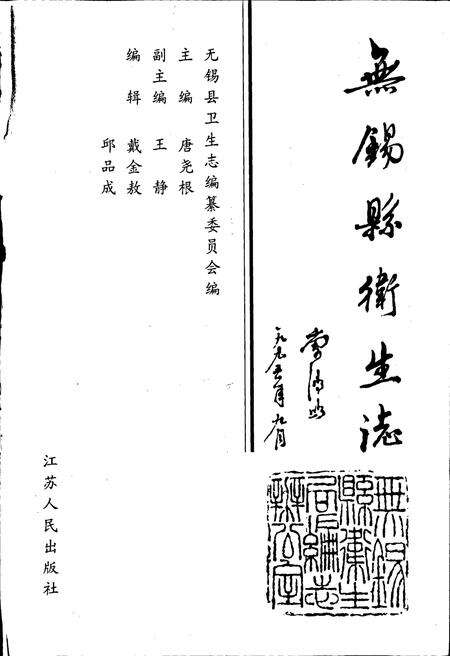 無錫縣衛生誌
一九九五年九月
无锡县卫生志编纂委员会编
主编 唐尧根
副主编 王静
编辑 戴金敖
邱品成
江苏人民出版社
無錫縣衛生局編志辦公室